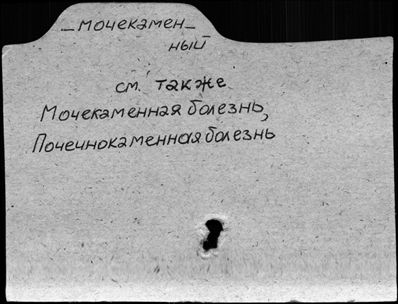 _мочекамен_
ный
см. также
Мочекаменная болезнь,
Почечнокаменная болезнь